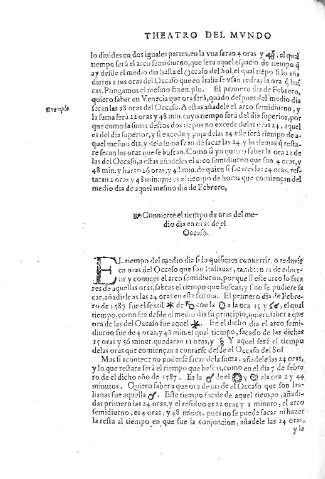 THEATRO DEL MVNDO
lo divides en dos iguales partes, en la vna seran 4 oras y 48, el qual
tiempo sera el arcu semidiurno, que sera aquel espacio de tiempo q̃
ay desde el medio dia hasta el Occaso del Sol, el qual tiẽpo si lo aña
dieres a las oras del Occaso que en Italia se vsan tẽdras la ora q̃ bus
cas. Pongamos el mesmo Exemplo. El primero dia de Febrero,
Exemplo
quiero saber en Venecia que ora sera, quãdo despues del medio dia
seran las 18 oras del Occaso. A estas añadele el arco semidiurno, y
la suma sera 22 oras y 48 min. cuyo tiempo sera del dia superior, por
que como la suma destos dos tiempos no excede dela 24 oras, aquel
es del dia superior, y si excede y passa delas 24 este sera tiempo de a-
quel mesmo dia, y dela suma se an de sacar las 24 y lo demas q̃ resta
re seran las oras que se buscan. Como si yo quiero saber la ora 22 de
las del Occaso, a estas añadeles el arco semidiurno que son 4 oras, y
48 min. y haran 26 oras y 48 min. de quien si sacares las 24 oras, res-
taran 2 oras y 48 minu. que es el tiempo de las oras que comiençan del
medio dia de aquel mesmo dia de Febrero.
Conuierte el tiempo de oras del me-
dio dia en oras de el
Occaso.
EL tiempo del medio dia si lo quisieres conuertir, o reduzir
en oras del Occaso que son Italianas, tambien as de obser-
uar y conocer el arco semidiurno, porque si este arco lo sacares
de aquellas oras, sabras el tiempo que buscas, y si no se pudiere sa
car, añadirleas las 24 oras en esta forma. El primero dia de Febre-
ro de 1587 fue el sextil de con la a las 15 y 56, el qual
tiempo, como sea desde el medio dia a principio, quiero saber a que
ora de las del Occaso fue aquel. En el dicho dia el arco semi
diurno fue de 4 oras, y 48 min. el qual tiempo, sacado de las dichas
15 oras y 56 minut. quedaran 11 oras, y 8 Y aquel sera el tiempo
delas oras que comiençan a contarse desde el Occaso del Sol
Mas si aconteciere no poderse sacar dela suma, añadele las 24 oras,
y lo que restare sera el tiempo que buscas, como en el dia 7 de febre
ro de el dicho año de 1587. Es la de el y ala ora 2 y 44
minutos. Quiero saber a que ora de las de el Occaso que son Ita-
lianas fue aquella. Este tiempo fue sacado en esta forma, añadi-
das primero las 24 oras, y el residuo es 22 oras y 1 minuto, el arco
semidiurno es 4 oras, y 48 minut. pues no se puede sacar ni hazer
la resta al tiempo en que fue la conjuncion, añadele las 24 oras,
y la